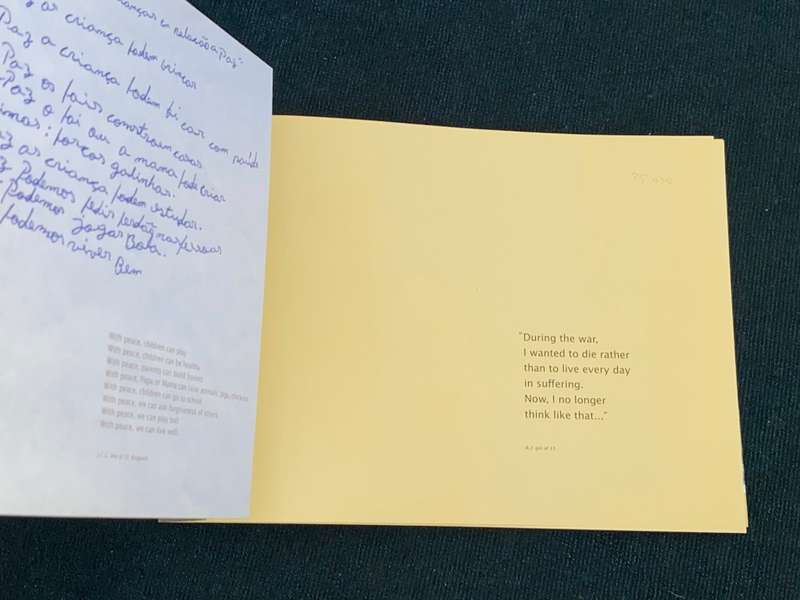 crianças em relação a Paz"
as criança podem brincar
Paz a criança podem fi car com saúde
Paz os pais constroem casas
Paz o pai ou a mama pode criar
porcos galinhas.
as criança podem estudar.
Podemos pedir perdão
Podemos jogar Bola.
podemos viver Bem
With peace, children can play
With peace, children can be healthy
With peace, parents can build houses
With peace, Papa or Mama can raise animals: pigs, chickens
With peace, children can go to school
With peace, we can ask forgiveness of others
With peace, we can play ball
With peace, we can live well.
"During the war,
I wanted to die rather
than to live every day
in suffering.
Now, I no longer
think like that..."
girl of 13